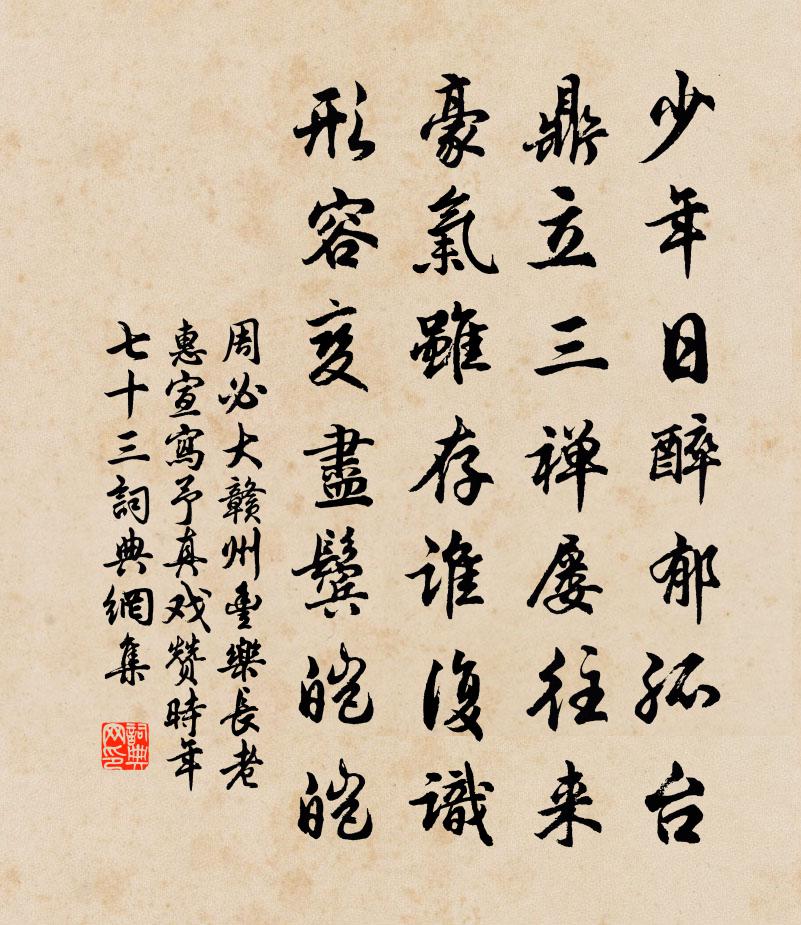 少年日醉郁孤台
鼎立三禅屡往来
豪氣雖存誰復識
形容变盡鬓皑皑
周必大赣州豊樂長老
惠宣寫予真戏赞時年
七十三詞典網集
詞典网印